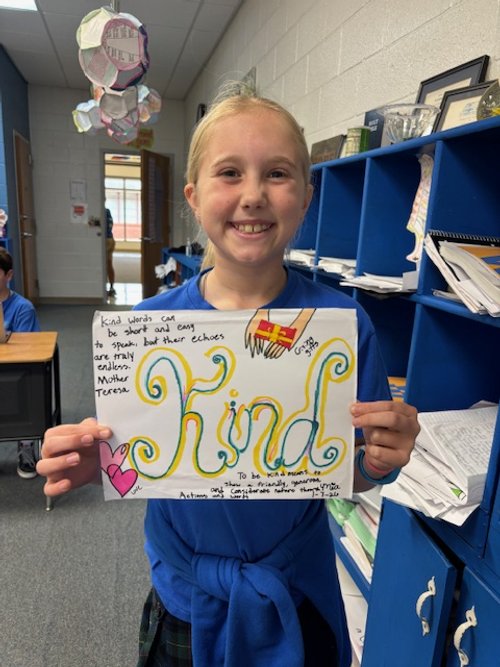 Kind words can
be short and easy
to speak, but their echoes
are truly
endless.
Mother
Teresa
Giving
gifts
Kind
Love
To be kind means to
show a friendly, generous
and considerate nature through
Actions and words